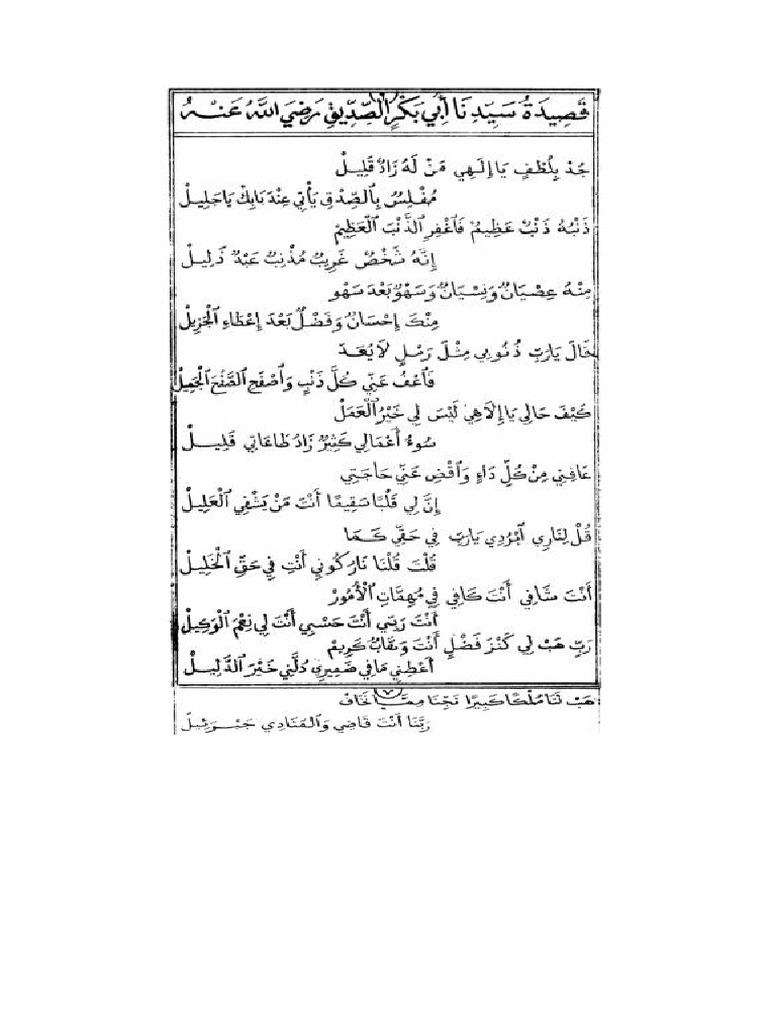 قَصِيدَةُ سَيِّدِنَا أَبِي بَكْرٍ الصِّدِّيقِ رَضِيَ اللَّهُ عَنْهُ
جُدْ بِلُطْفٍ يَا إِلَهِي مَنْ لَهُ زَادٌ قَلِيلْ
مُفْلِسٌ بِالصِّدْقِ يَأْتِي عِنْدَ بَابِكْ يَا جَلِيلْ
ذَنْبُهُ ذَنْبٌ عَظِيمٌ فَاغْفِرِ الذَّنْبَ الْعَظِيمْ
إِنَّهُ شَخْصٌ غَرِيبٌ مُذْنِبٌ عَبْدٌ ذَلِيلْ
مِنْهُ عِصْيَانٌ وَنِسْيَانٌ وَسَهْوٌ بَعْدَ سَهْوٍ
مِنْكَ إِحْسَانٌ وَفَضْلٌ بَعْدَ إِعْطَاءِ الْجَزِيلْ
قَالَ يَارَبِّ ذُنُوبِي مِثْلَ رَمْلٍ لَا يُعَدْ
فَاعْفُ عَنِّي كُلَّ ذَنْبٍ وَاصْفَحِ الصَّفْحَ الْجَمِيلْ
كَيْفَ حَالِي يَا إِلَاهِي لَيْسَ لِي خَيْرُ الْعَمَلْ
سُوءُ أَعْمَالِي كَثِيرٌ زَادُ طَاعَاتِي قَلِيلْ
عَافِنِي مِنْ كُلِّ دَاءٍ وَاقْضِ عَنِّي حَاجَتِي
إِنَّ لِي قَلْبًا سَقِيمًا أَنْتَ مَنْ يَشْفِي الْعَلِيلْ
قُلْ لِنَارِي ابْرُدِي يَارَبِّ فِي حَقِّي كَمَا
قُلْتَ قُلْنَا نَارُ كُونِي أَنْتِ فِي حَقِّ الْخَلِيلْ
أَنْتَ شَافِي أَنْتَ كَافِي فِي مُهِمَّاتِ الْأُمُورْ
أَنْتَ رَبِّي أَنْتَ حَسْبِي أَنْتَ لِي نِعْمَ الْوَكِيلْ
رَبِّ هَبْ لِي كَنْزَ فَضْلٍ أَنْتَ وَهَّابٌ كَرِيمْ
اَعْطِنِي مَا فِي ضَمِيرِي دُلَّنِي خَيْرَ الدَّلِيلْ
٧
هَبْ لَنَا مُلْكًا كَبِيرًا نَجِّنَا مِمَّا نَخَافْ
رَبَّنَا أَنْتَ قَاضِي وَالْمُنَادِي جَبْرَئِيلْ